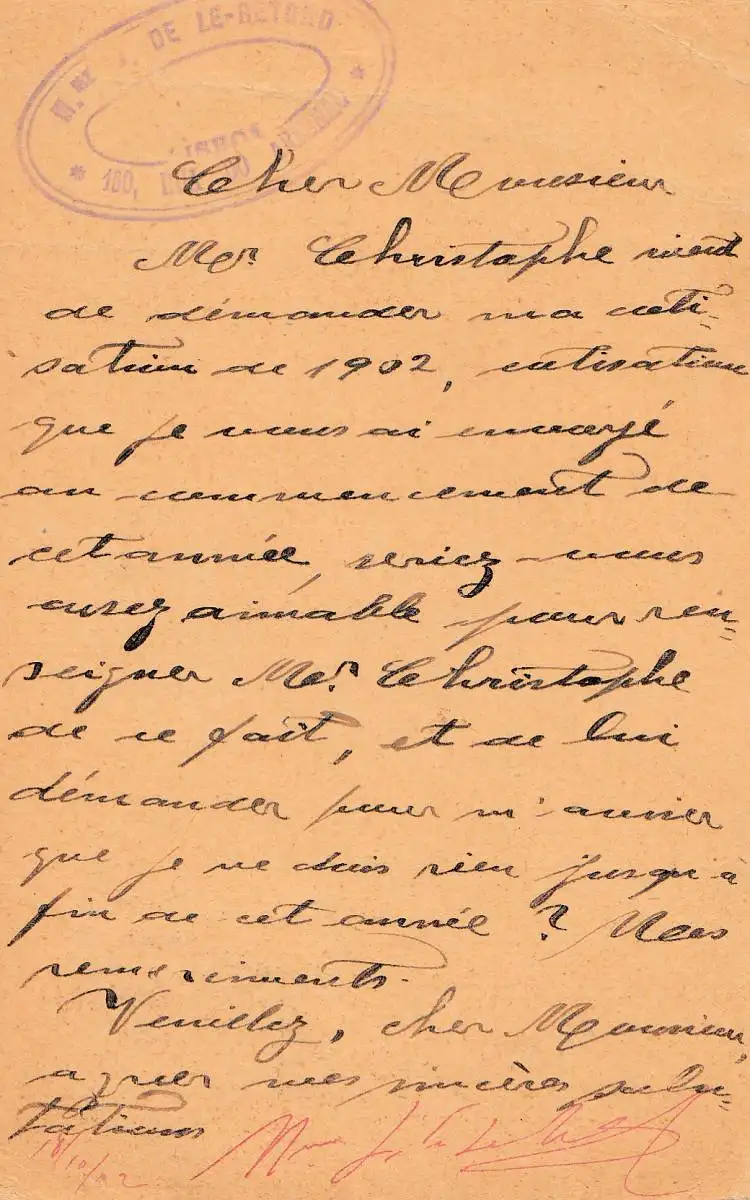 DE LE-RETORD
LISBOA
180,
Cher Monsieur
Mr. Christophe vient
de démander ma coti-
sation de 1902, cotisation
que je vous ai envoyé
au commencement de
cet année, seriez-vous
assez aimable pour ren=
seigner Mr. Christophe
de ce fait, et de lui
démander pour m'
que je ne dois rien jusqu'à
fin de cet année ? Mes
remerciments.
Veuillez, cher Monsieur,
agréer mes sincères salu=
tations
18/10/02 Mme